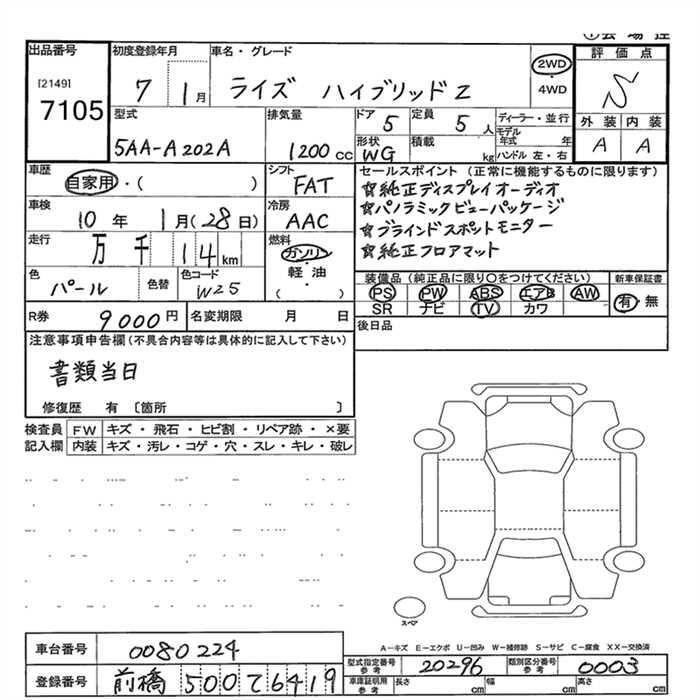 出品番号 初度登録年月 車名・グレード 評価点
[2149] 7105
7 1月 ライズ ハイブリッドZ 2WD・4WD S
型式 排気量 ドア 5 定員 5人 ディーラー・並行 外装 内装
5AA-A202A 1200cc 形状 WG 積載 kg モデル年式 年 ハンドル 左・右 A A
車歴 自家用・( ) シフト FAT セールスポイント (正常に機能するものに限ります)
☆純正ディスプレイオーディオ
車検 10年 1月(28日) 冷房 AAC ☆パノラミックビューパッケージ
☆ブラインドスポットモニター
走行 万千 14km 燃料 ガソリン ☆純正フロアマット
・軽油 ( )
色 パール 色替 色コード W25
装備品(純正品に限り○をつけてください) 新車保証書
PS PW ABS エアB AW 有・無
SR ナビ TV カワ
R券 9000円 名変期限 月 日 後日品
注意事項申告欄(不具合内容等は具体的に記入して下さい)
書類当日
修復歴 有 〔箇所 〕
検査員 FW キズ・飛石・ヒビ割・リペア跡・×要
記入欄 内装 キズ・汚レ・コゲ・穴・スレ・キレ・破レ
スペア
A-キズ E-エクボ U-凹み W-補修跡 S-サビ C-腐食 XX-交換済
車台番号 0080224 型式指定番号 参考 20296 類別区分番号 参考 0003
登録番号 前橋 500 て 6419 車庫証明用 参考 長さ cm 幅 cm 高さ cm